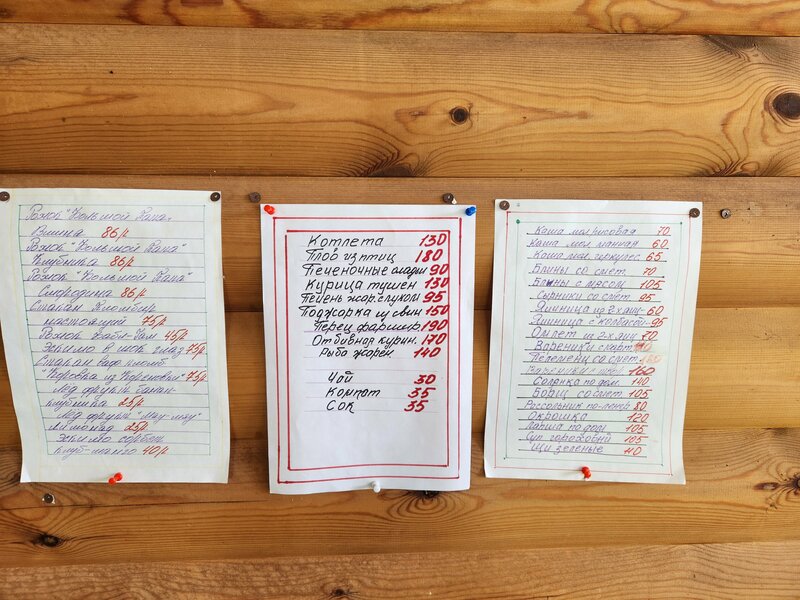 Рожок "Большой Папа"
Вишня 86р
Рожок "Большой Папа"
Клубника 86р
Рожок "Большой Папа"
Смородина 86р
Стакан Пломбир
настоящий 75р
Рожок 45р
Эскимо в шок глаз 75р
Стакан ваф пломб
"Коровка из Кореновки" 75р
Лёд фрукт банан-
клубника 25р
Лёд фрукт "Мяу-мяу"
лимонад 25р
Эскимо сорбет
Клуб-манго 40р
Котлета 130
Плов из птиц 180
Печеночные оладьи 90
Курица тушен 130
Печень жар. с луком 95
Поджарка из свин 150
Перец фаршир 190
Отбивная курин. 170
Рыба жарен 140
Чай 30
Компот 35
Сок 35
Каша мол рисовая 70
Каша мол манная 60
Каша мол геркулес 65
Блины со смет. 70
Блины с мясом 105
Сырники со смет 95
Яишница из 2-х яиц 60
Яишница с колбасой 95
Омлет из 2-х яиц 70
Вареники с карт
Пельмени со смет.
Вареники с 160
Солянка по дом. 140
Борщ со смет 105
Рассольник по-ленгр 80
Окрошка 120
Лапша по дом 105
Суп гороховый 105
Щи зеленые 110